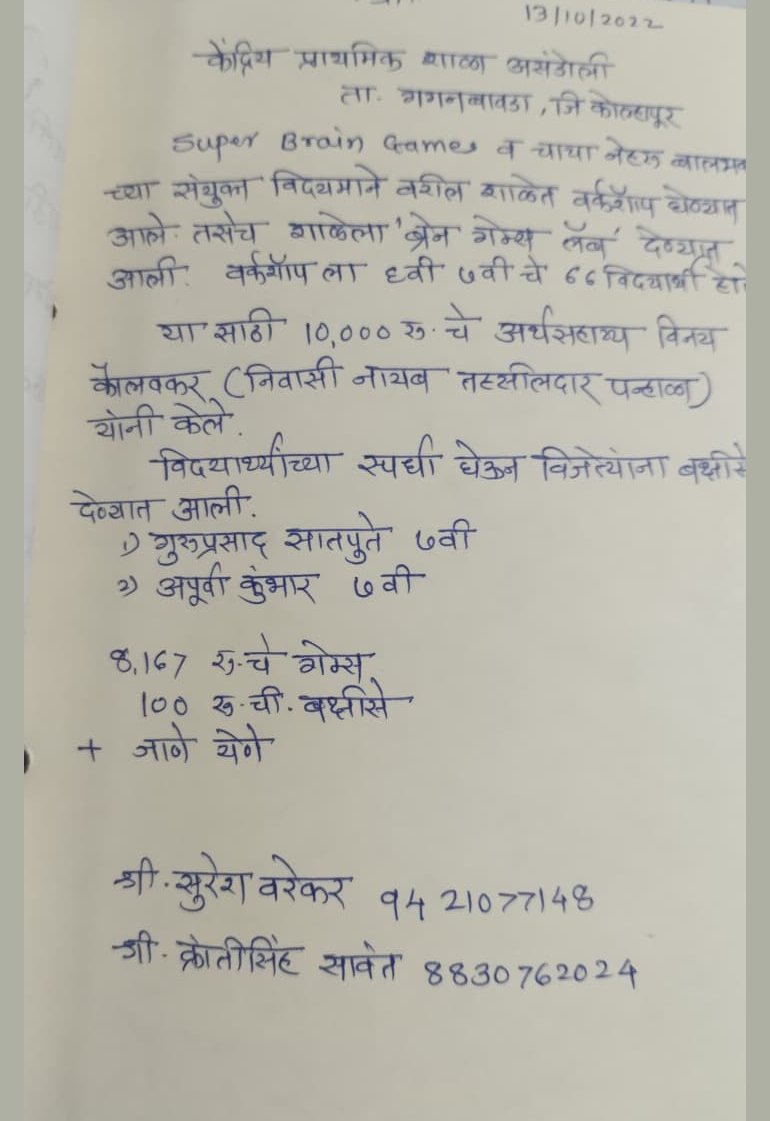 13/10/2022
केंद्रिय प्राथमिक शाळा असंडोली
ता. गगनबावडा, जि कोल्हापूर
Super Brain Games व चाचा नेहरू बालभव
च्या संयुक्त विदयमाने वरील शाळेत वर्कशॉप घेण्यात
आले. तसेच शाळेला 'ब्रेन गेम्स लॅब' देण्यात
आली. वर्कशॉप ला ६वी ७वी चे 66 विदयार्थी होते
या साठी 10,000 रु. चे अर्थसहाय्य विनय
कौलवकर (निवासी नायब तहसीलदार पन्हाळा)
यांनी केले.
विदयार्थ्यांच्या स्पर्धा घेऊन विजेत्यांना बक्षीसे
देण्यात आली.
1) गुरुप्रसाद सातपुते ७वी
2) अपूर्वा कुंभार ७ वी
8,167 रु.चे गेम्स
100 रु.ची. बक्षीसे
+ जाणे येणे
श्री. सुरेश वरेकर 94 21077148
श्री. क्रांतीसिंह सावंत 8830762024